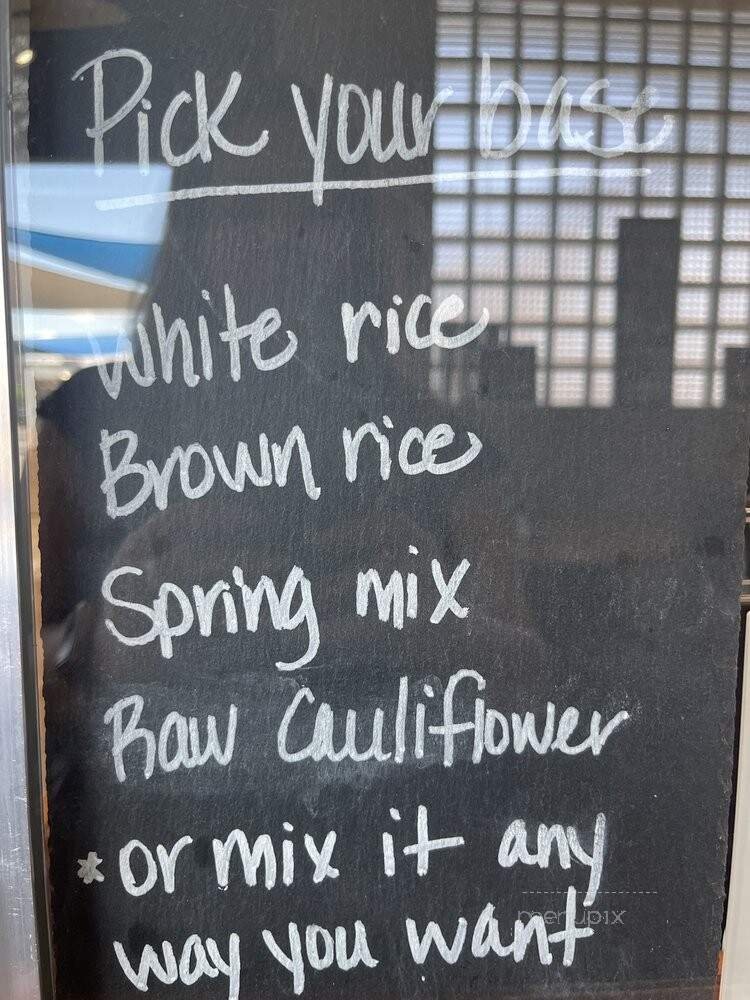 Pick your base
White rice
Brown rice
Spring mix
Raw Cauliflower
* or mix it any
way you want
menupix